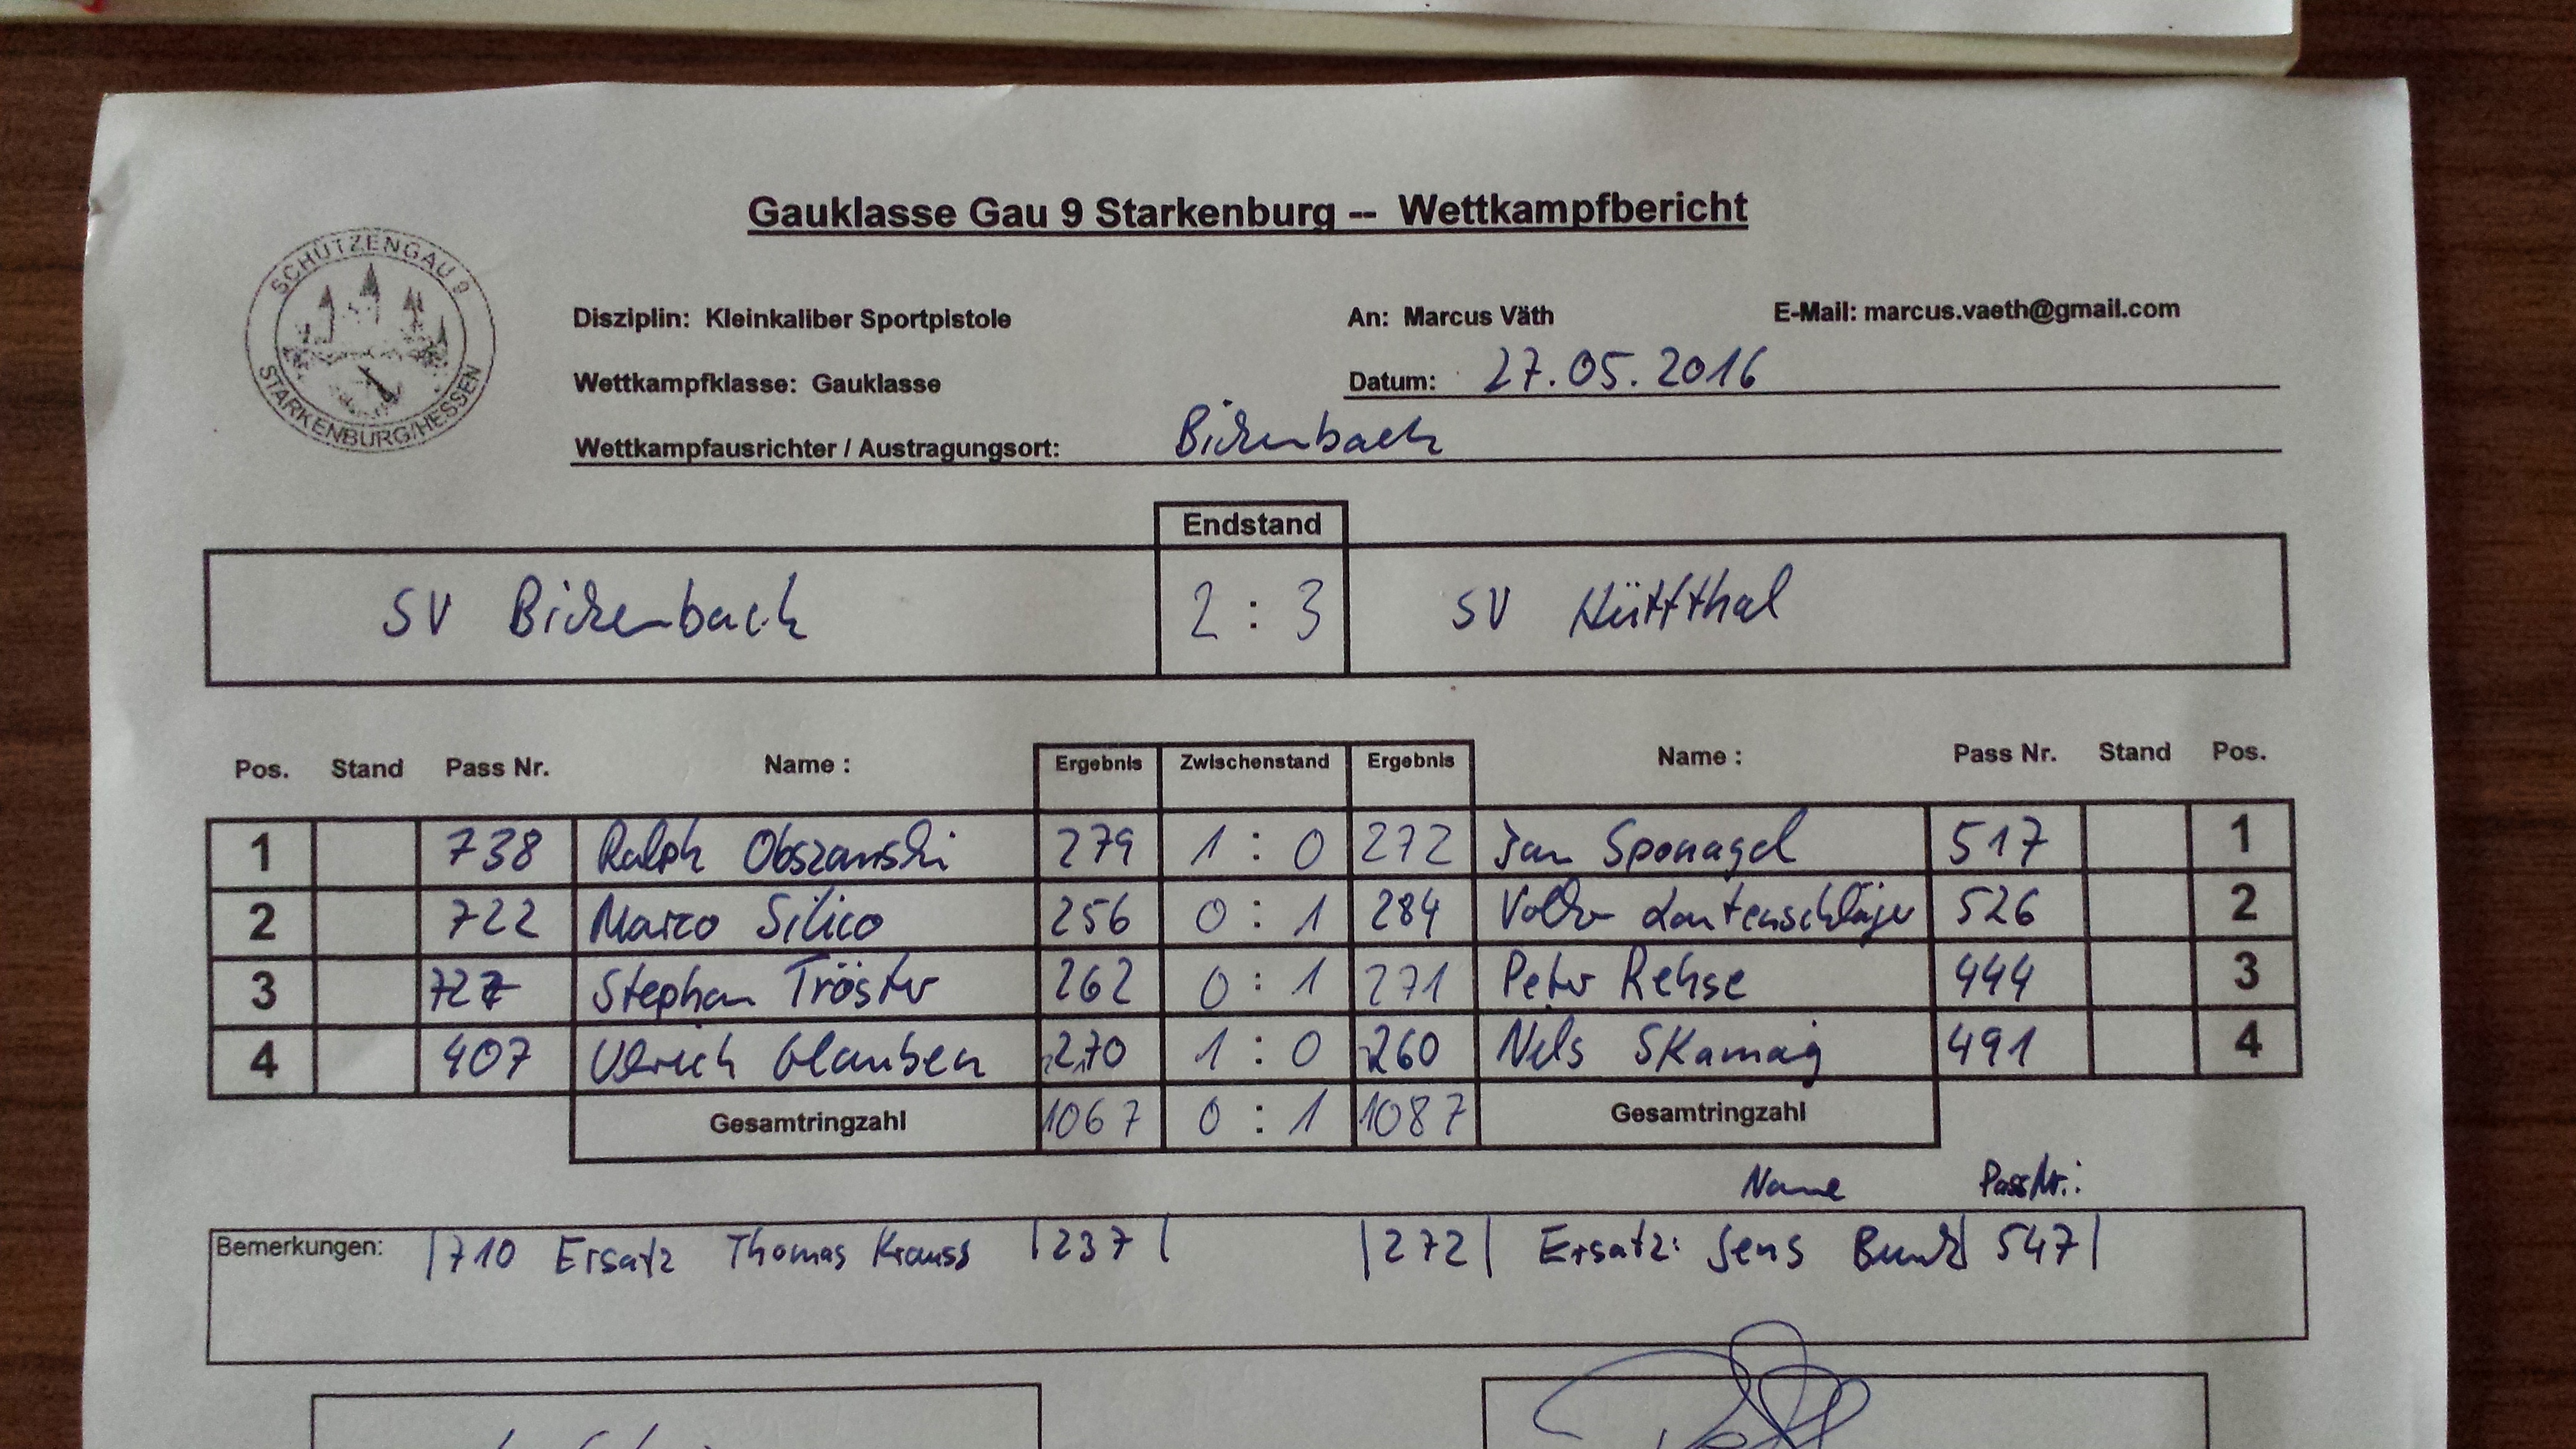 Gauklasse Gau 9 Starkenburg -- Wettkampfbericht
SCHÜTZENGAU 9
STARKENBURG/HESSEN
Disziplin: Kleinkaliber Sportpistole An: Marcus Väth E-Mail: marcus.vaeth@gmail.com
Wettkampfklasse: Gauklasse Datum: 27.05.2016
Wettkampfausrichter / Austragungsort: Bickenbach
Endstand
SV Bickenbach 2 : 3 SV Hüttthal
Pos. Stand Pass Nr. Name : Ergebnis Zwischenstand Ergebnis Name : Pass Nr. Stand Pos.
1 738 Ralph Obszanski 279 1 : 0 272 Jan Sponagel 517 1
2 722 Marco Silico 256 0 : 1 284 Volker Lautenschläger 526 2
3 727 Stephan Tröster 262 0 : 1 271 Peter Rehse 444 3
4 407 Ulrich Glauben 270 1 : 0 260 Nils Skamaig 491 4
Gesamtringzahl 1067 0 : 1 1087 Gesamtringzahl
Name PassNr.:
Bemerkungen: |710 Ersatz Thomas Krauss |237| |272| Ersatz: Jens 547|